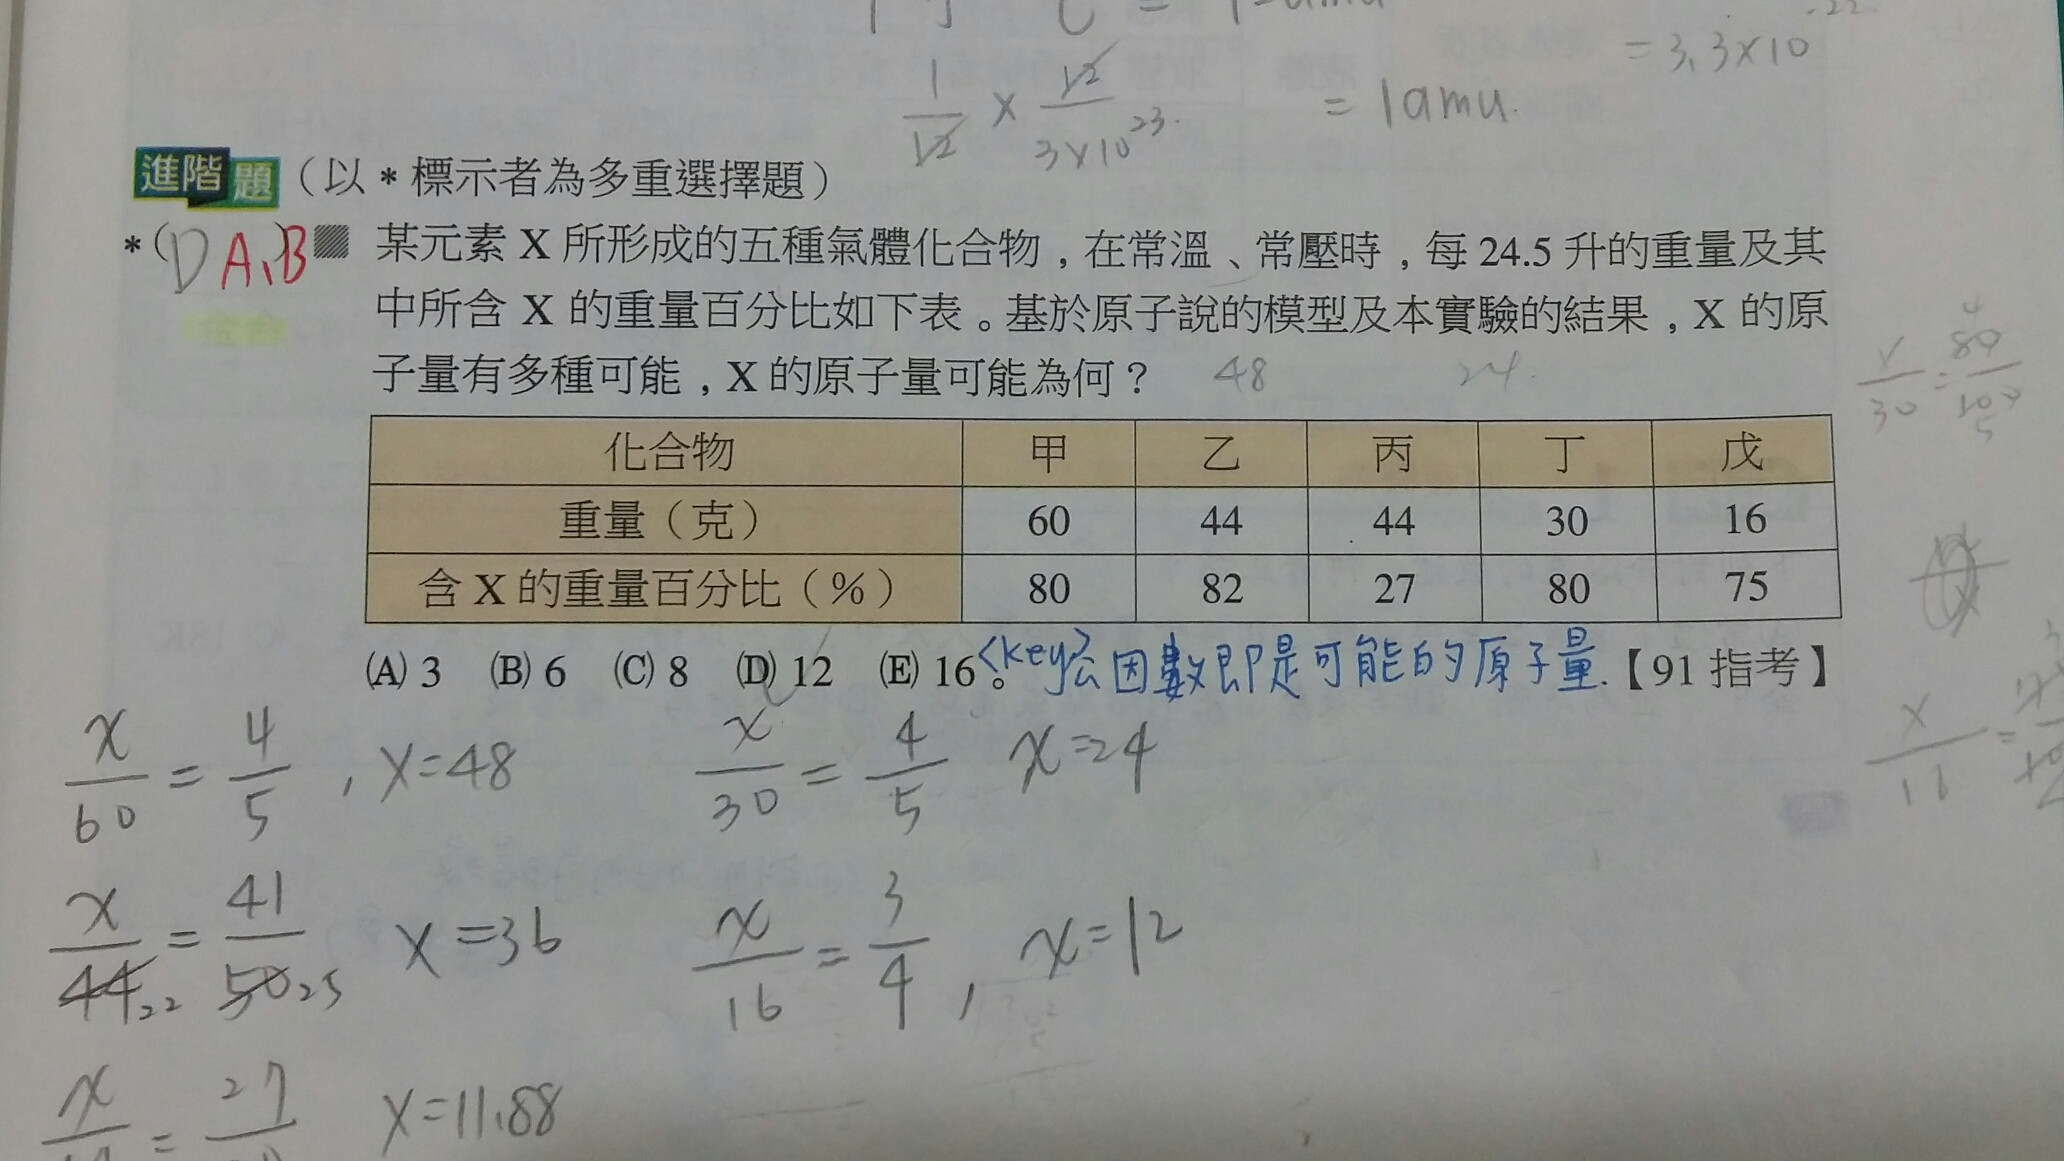 = 3.3×10
1/12 × 12/3×10²³ = 1amu.
進階題（以＊標示者為多重選擇題）
*(D A、B 某元素 X 所形成的五種氣體化合物，在常溫、常壓時，每 24.5 升的重量及其
中所含 X 的重量百分比如下表。基於原子說的模型及本實驗的結果，X 的原
子量有多種可能，X 的原子量可能為何？ 48 24.
化合物 甲 乙 丙 丁 戊
重量（克） 60 44 44 30 16
含 X 的重量百分比（％） 80 82 27 80 75
(A) 3 (B) 6 (C) 8 (D) 12 (E) 16。<key>公因數即是可能的原子量.【91 指考】
x/60 = 4/5 , x=48 x/30 = 4/5 x=24
x/44 22 = 41/50 25 x=36 x/16 = 3/4 , x=12
x = 27 x=11.88